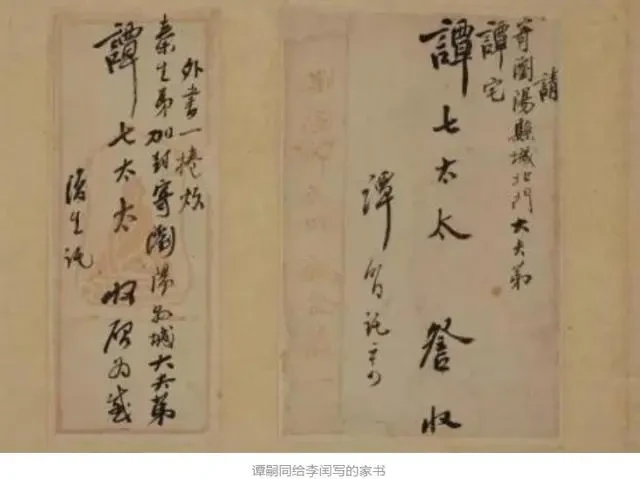 請
寄瀏陽縣城北門大夫第
譚宅
譚七太太 詧收
譚 託
外書一捲煩
秦生弟加封寄瀏陽縣城大夫第
譚七太太 收啟為感
復生託
谭嗣同给李闰写的家书